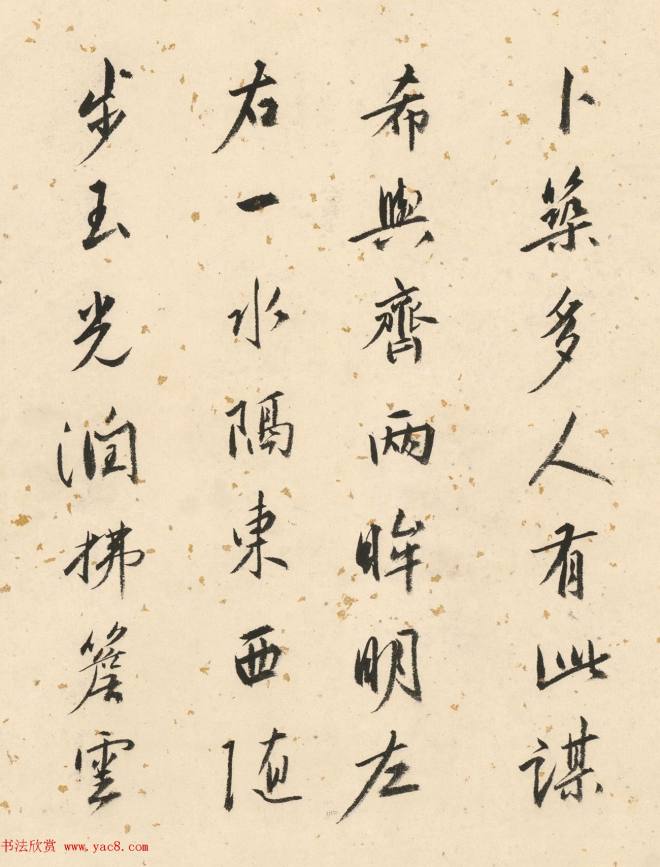 卜築多人有此謀
希與齊兩眸明左
右一水隔東西随
步玉光潤拂簷雲
书法欣赏 www.yac8.com